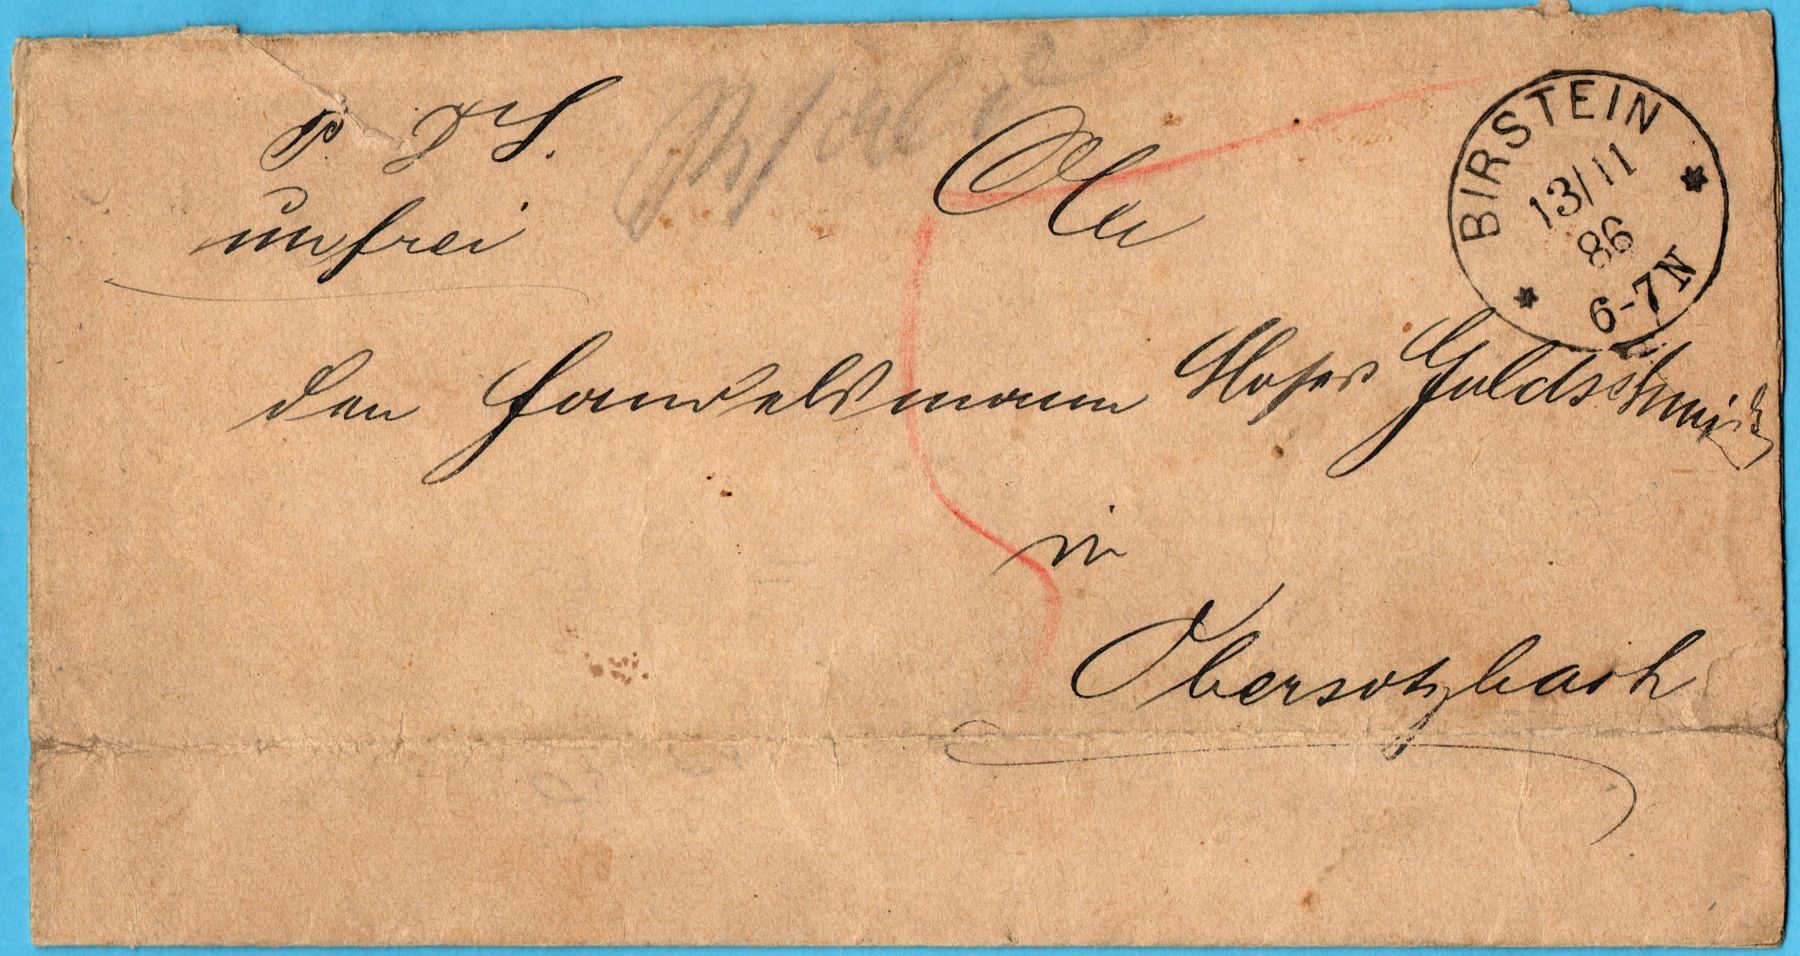 P. D S.
unfrei
An
BIRSTEIN
13/11
86
6-7N
den Handelsmann Moses Goldschmidt
in
Obersotzbach